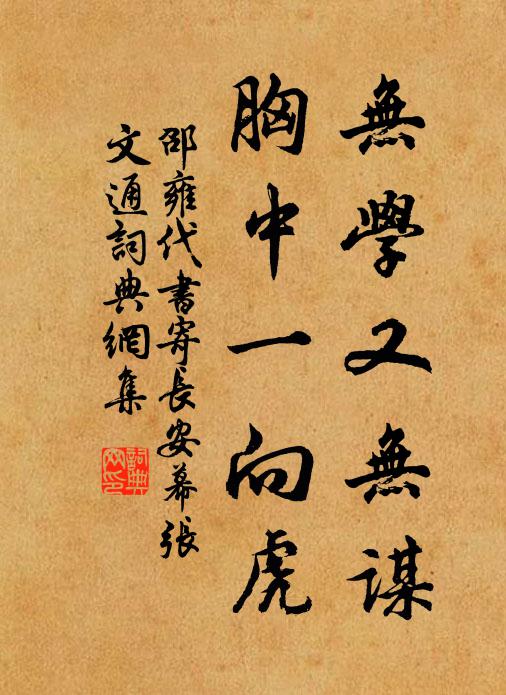 無學又無謀
胸中一向虎
邵雍代書寄長安幕張
文通詞典網集
詞典
网印